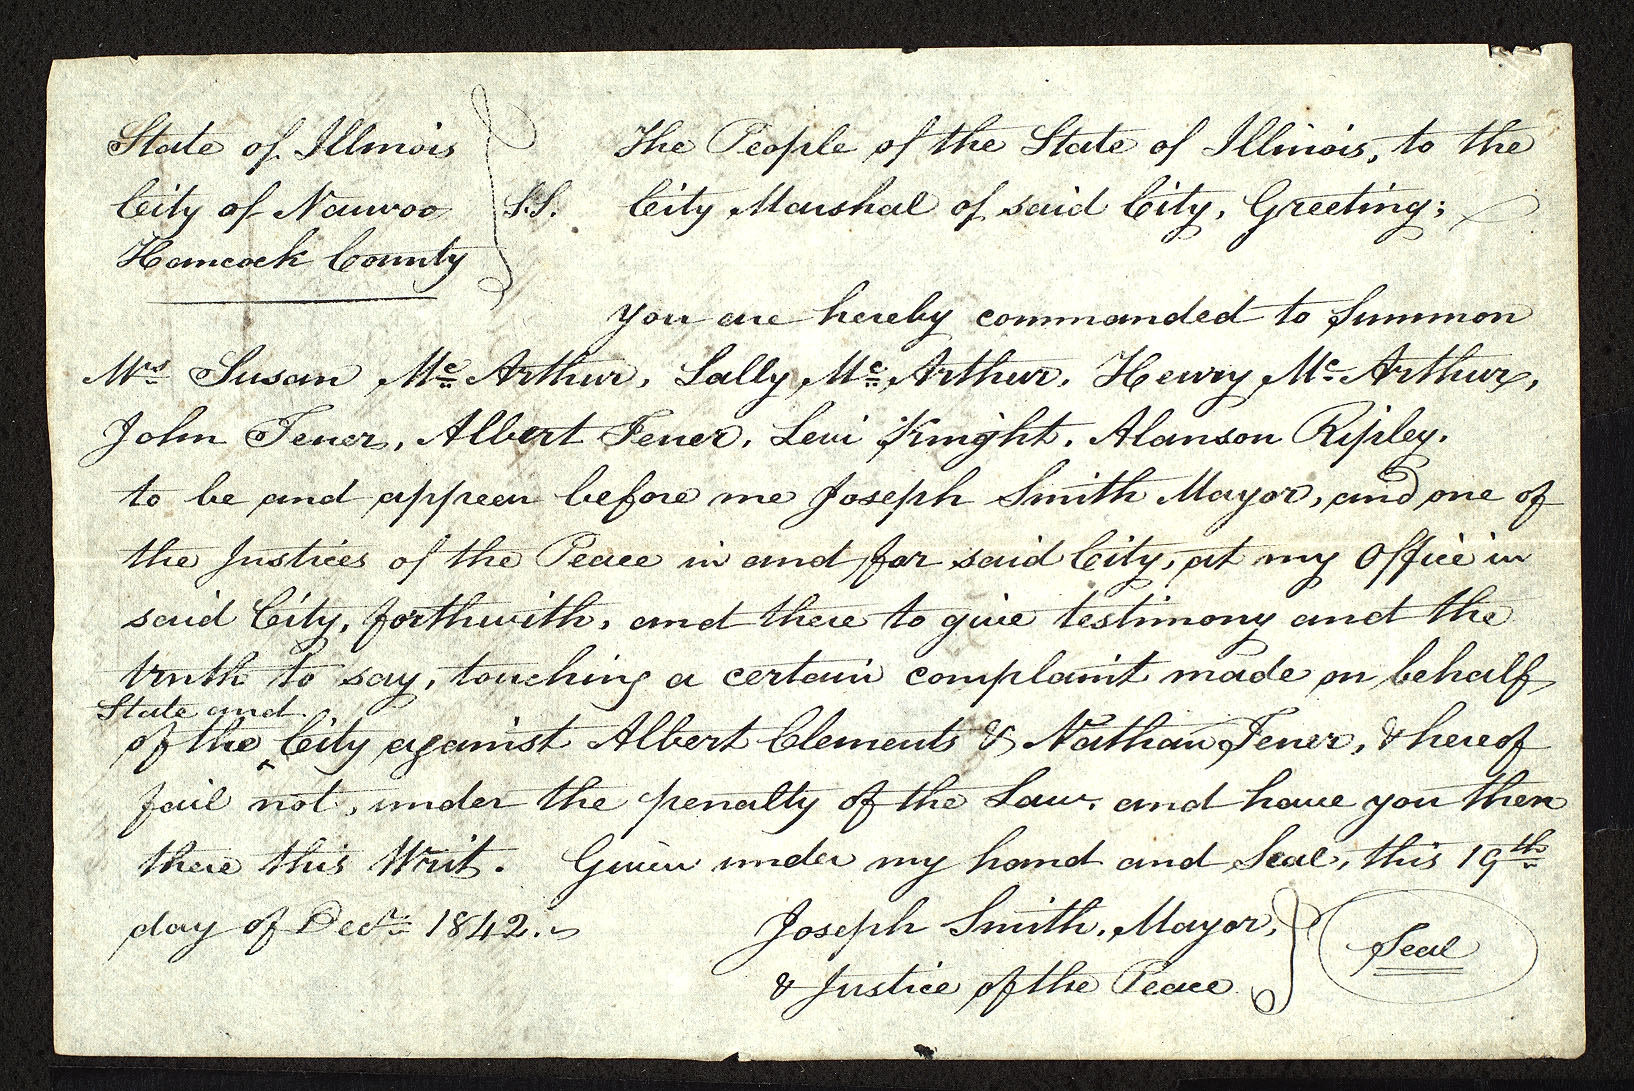 State of Illinois
City of Nauvoo
Hancock County
S.S.
The People of the State of Illinois, to the
City Marshal of said City, Greeting;
You are hereby commanded to Summon
Mrs Susan Mc Arthur, Sally Mc Arthur, Henry Mc Arthur,
John Tener, Albert Tener, Levi Knight, Alanson Ripley,
to be and appear before me Joseph Smith Mayor, and one of
the Justices of the Peace in and for said City, at my Office in
said City, forthwith, and there to give testimony and the
truth to say, touching a certain complaint made on behalf
State and
of the ^ City against Albert Clements & Nathan Tener, & hereof
fail not, under the penalty of the Law. and have you then
there this Writ. Given under my hand and Seal, this 19th
day of Decr 1842.
Joseph Smith, Mayor,
& Justice of the Peace
Seal